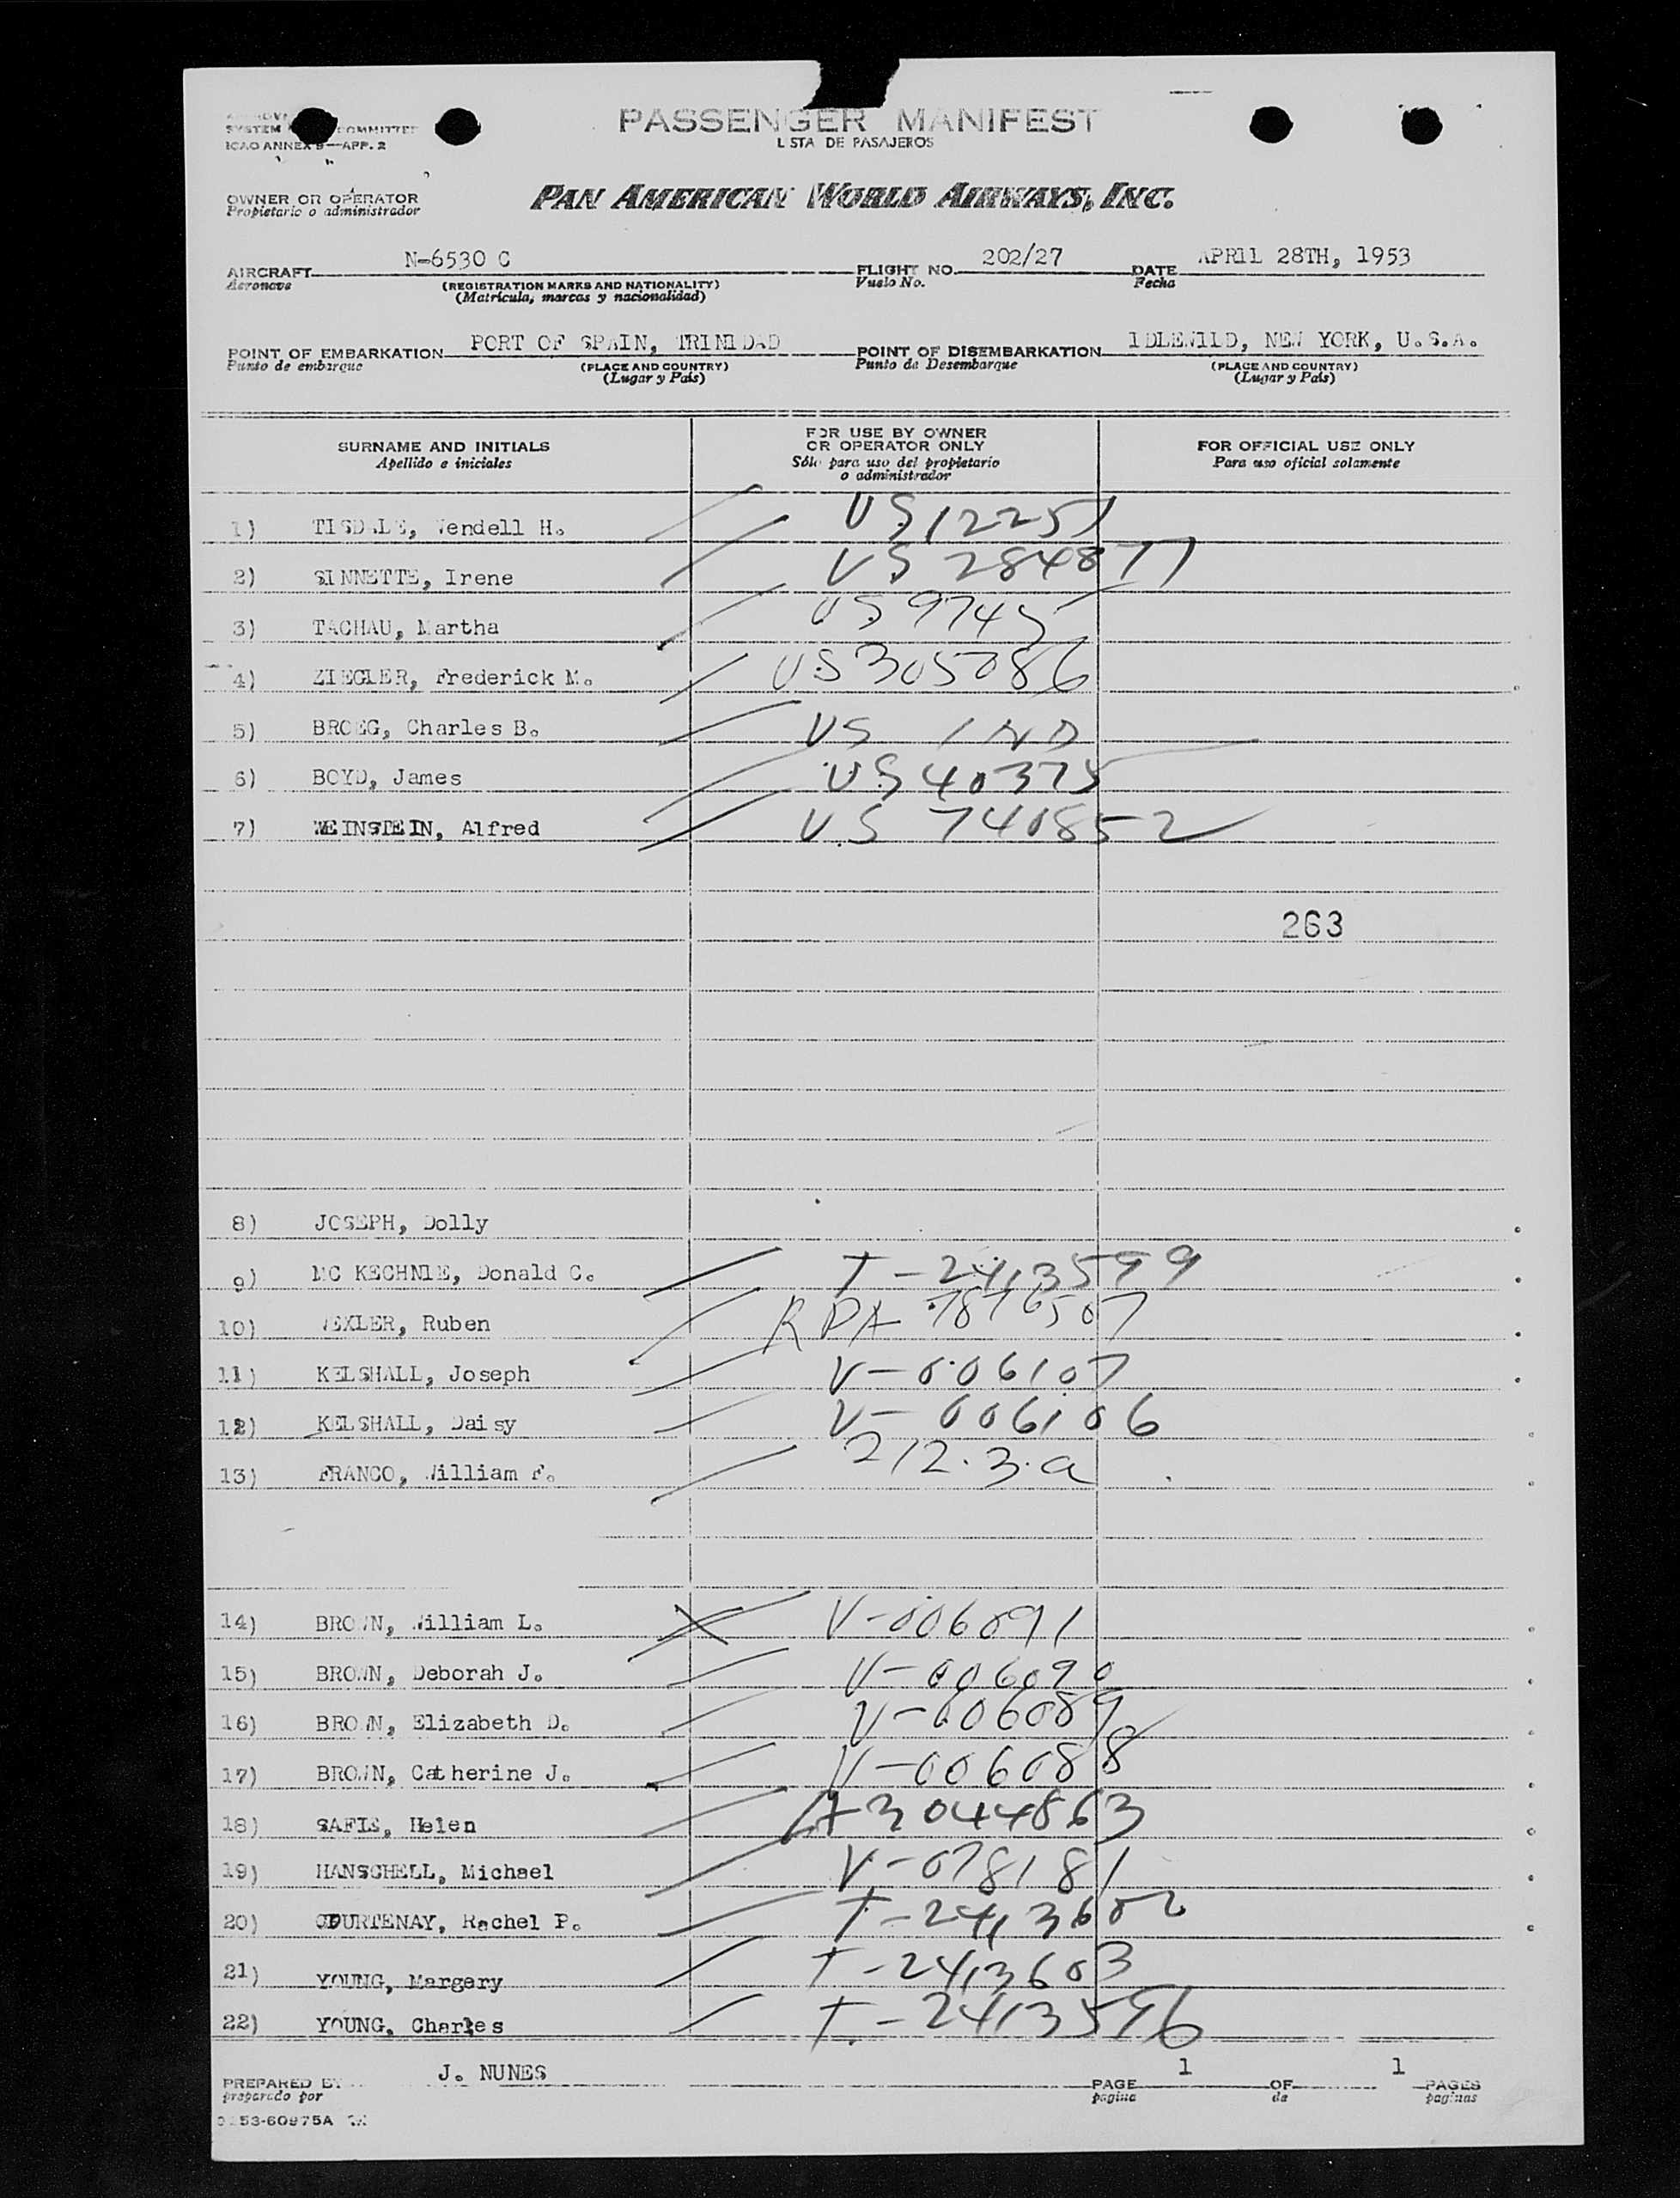 SYSTEM COMMITTEE
ICAO ANNEX 9—APP. 2
PASSENGER MANIFEST
LISTA DE PASAJEROS
OWNER OR OPERATOR
Propietario o administrador
PAN AMERICAN WORLD AIRWAYS, INC.
AIRCRAFT N-6530 C FLIGHT NO. 202/27 DATE APRIL 28TH, 1953
Aeronave (REGISTRATION MARKS AND NATIONALITY) Vuelo No. Fecha
(Matrícula, marcas y nacionalidad)
POINT OF EMBARKATION PORT OF SPAIN, TRINIDAD POINT OF DISEMBARKATION IDLEWILD, NEW YORK, U.S.A.
Punto de embarque (PLACE AND COUNTRY) Punto de Desembarque (PLACE AND COUNTRY)
(Lugar y País) (Lugar y País)
SURNAME AND INITIALS FOR USE BY OWNER OR OPERATOR ONLY FOR OFFICIAL USE ONLY
Apellido e iniciales Sólo para uso del propietario o administrador Para uso oficial solamente
1) TISDALE, Wendell H. US 12251
2) SINNETTE, Irene US 284877
3) TACHAU, Martha US 9745
4) ZIEGLER, Frederick M. US 305086
5) BROEG, Charles B. US IND
6) BOYD, James US 40375
7) WEINSTEIN, Alfred US 740852
263
8) JOSEPH, Dolly
9) MC KECHNIE, Donald C. T-2413599
10) WEXLER, Ruben RPA 7876507
11) KELSHALL, Joseph V-006107
12) KELSHALL, Daisy V-006106
13) FRANCO, William F. 212.3.a
14) BROWN, William L. V-006091
15) BROWN, Deborah J. V-006090
16) BROWN, Elizabeth D. V-006089
17) BROWN, Catherine J. V-006088
18) SAFIE, Helen A3044863
19) HANSCHELL, Michael V-078181
20) COURTENAY, Rachel P. T-2413602
21) YOUNG, Margery T-2413603
22) YOUNG, Charles T-2413596
PREPARED BY J. NUNES PAGE 1 OF 1 PAGES
preparado por pagina de paginas